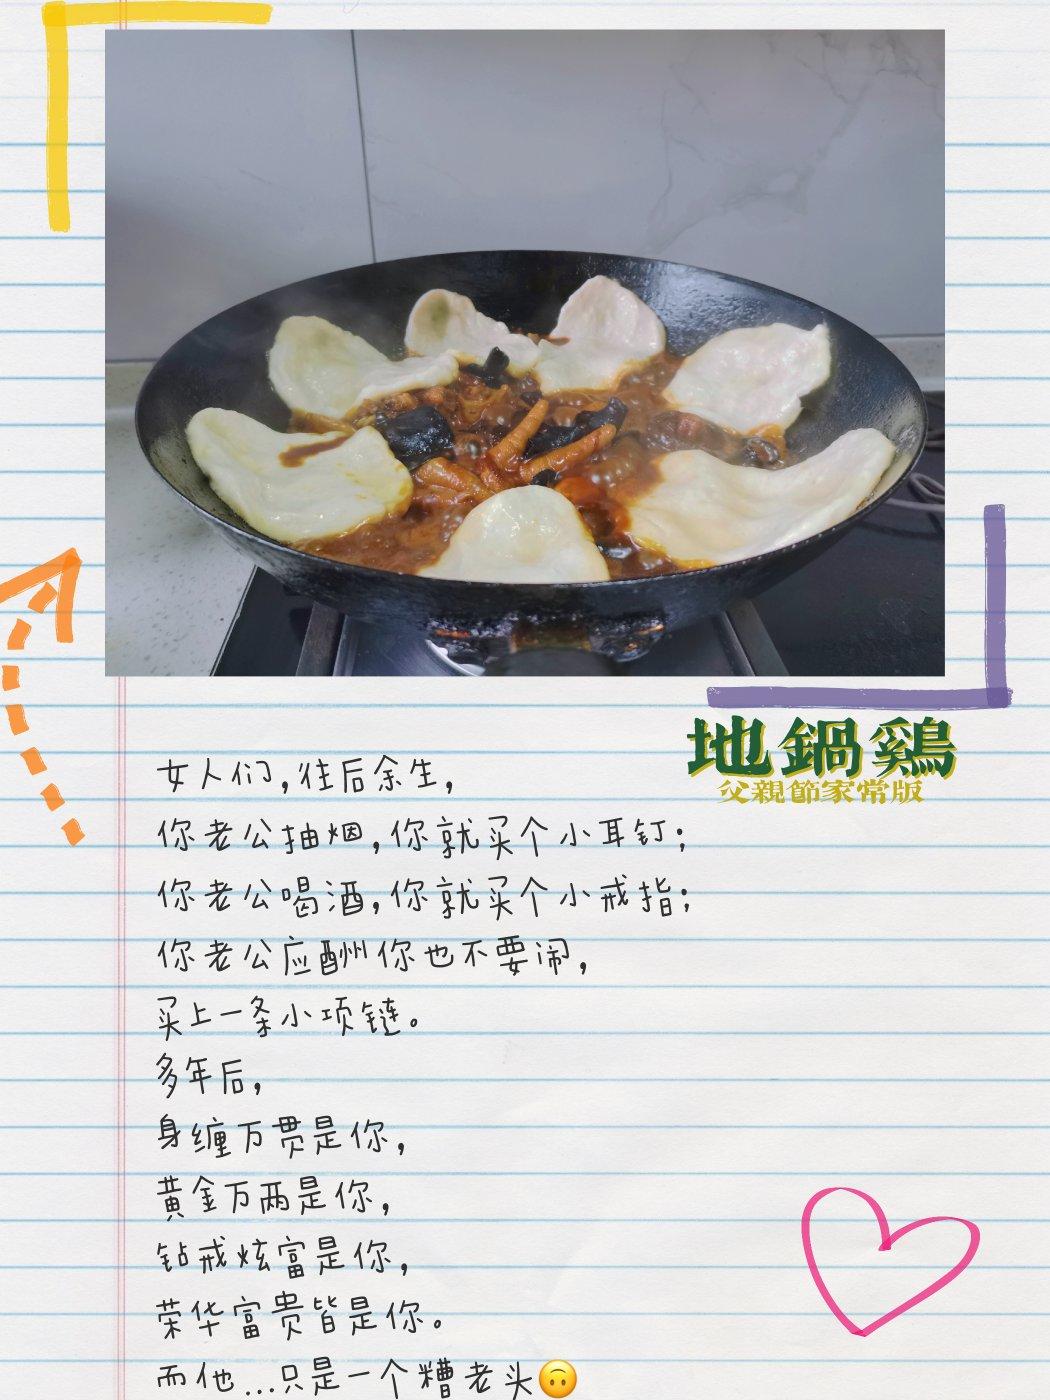 地鍋鷄
父親節家常版
女人们,往后余生,
你老公抽烟,你就买个小耳钉;
你老公喝酒,你就买个小戒指;
你老公应酬你也不要闹,
买上一条小项链。
多年后,
身缠万贯是你,
黄金万两是你,
钻戒炫富是你,
荣华富贵皆是你。
而他...只是一个糟老头🙃